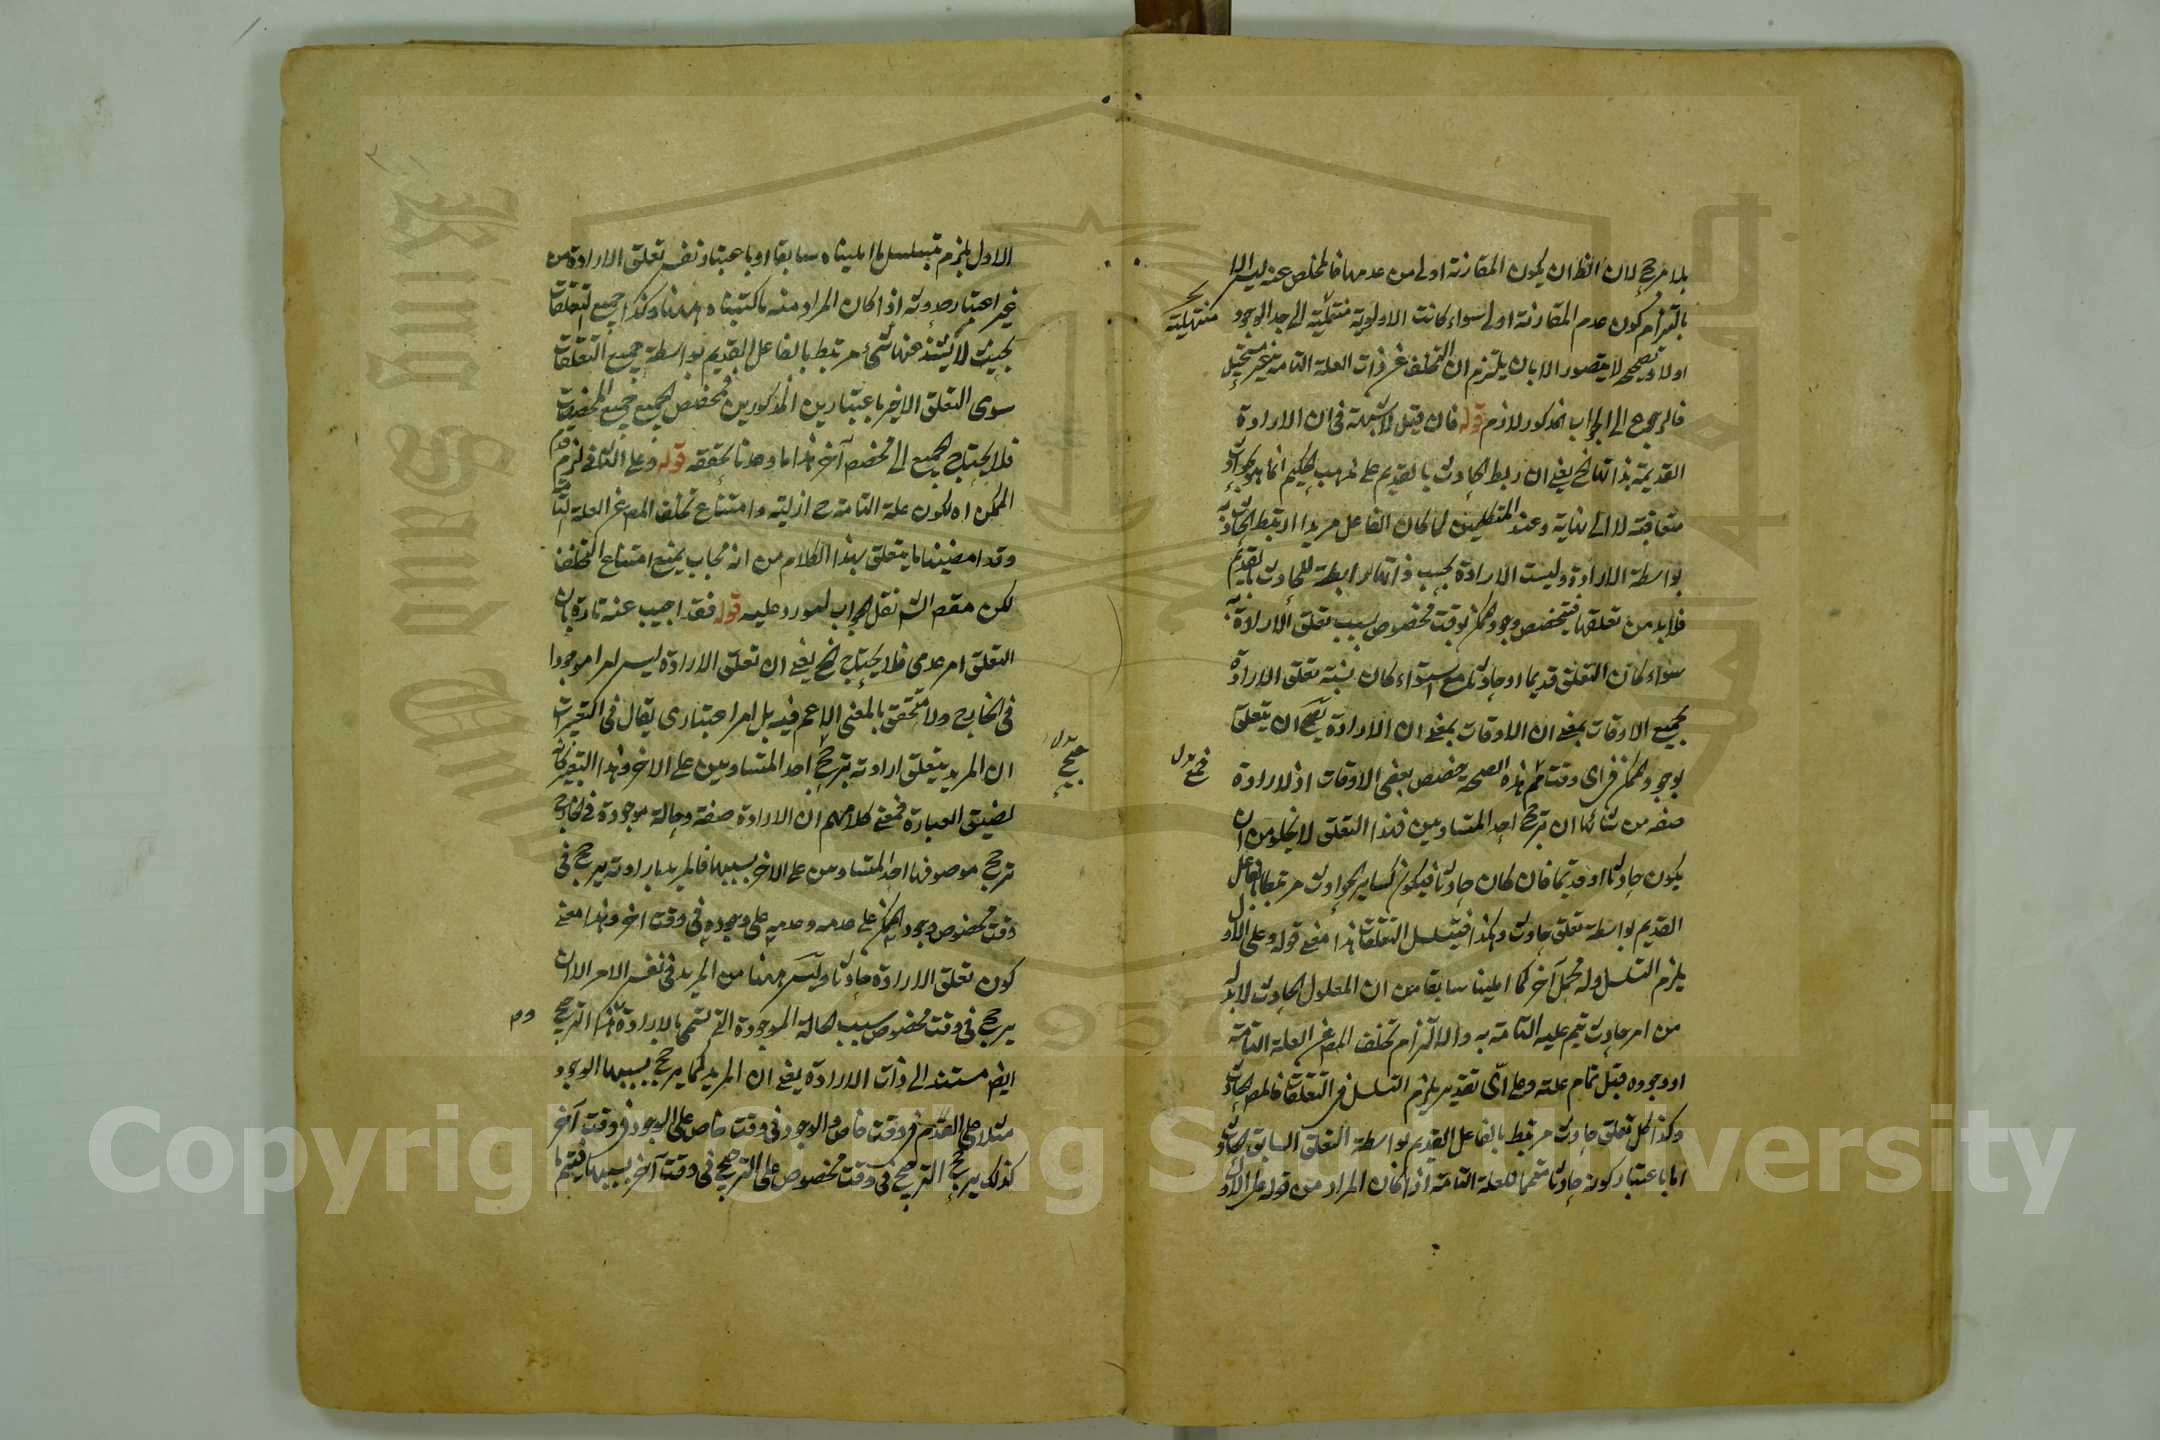 بلا مرجح لان الظ ان يكون المقارنة اولى من عدمها فالمخلص عنه ليس الا
بالتزام كون عدم المقارنة اولى سواء كانت الاولوية منتهية الى حد الوجوب
اولا وتصحيحه لا يتصور الا بان يلتزم ان التخلف عن ذات العلة التامة غير مستحيل
فالرجوع الى الجواب المذكور لازم قوله فان قيل لا شبهة فى ان الارادة
القديمة بذاتها الخ يعنى ان ربط الحادث بالقديم على مذهب الحكيم انما هو بحوادث
متعاقبة لا الى نهاية وعند المتكلمين لما كان الفاعل مريدا ارتبط الحادث به
بواسطة الارادة وليست الارادة بحسب ذاتها رابطة للحادث بالقديم
فلابد من تعلقها فيتخصص وجود الممكن بوقت مخصوص بسبب تعلق الارادة به
سواء كان التعلق قديما او حادثا مع استواء كان نسبة تعلق الارادة
بجميع الاوقات بمعنى ان الاوقات بمعنى ان الارادة يصح ان يتعلق
بوجود الممكن فى اى وقت ثم هذه الصحة يخصص ببعض الاوقات اذ الارادة
صفة من شانها ان ترجح احد المتساويين فهذا التعلق لا يخلو من ان
يكون حادثا او قديما فان كان حادثا فيكون كساير الحوادث مرتبطا بالفاعل
القديم بواسطة تعلق حادث وهكذا فيتسلسل التعلقات هذا معنى قوله وعلى الاول
يلزم التسلسل وله محمل آخر كما املينا سابقا من ان المعلول الحادث لابد له
من امر حادث يتم عليه التامة به والا التزام تخلف المع عن العلة التامة
او وجوده قبل تمام علته وعلى اى تقدير يلزم التسلسل فى التعلقات فالمع الحادث
وكذا كل تعلق حادث مرتبط بالفاعل القديم بواسطة التعلق السابق الحادث
اما باعتبار كونه حادثا متمما للعلة التامة اذا كان المراد من قوله على الاول
الاول يلزم تسلسل ما املينا ه سابقا او باعتبار نفس تعلق الارادة من
غير اعتبار حدوثه اذا كان المراد منه ما كتبناه ههنا وكذا جميع التعلقات
بحيث لا يشذ عنها شئ مرتبط بالفاعل القديم بواسطة جميع التعلقات
سوى التعلق الاخير باعتبارين المذكورين فمخصص الجميع جميع المخصصات
فلا يحتاج الجميع الى مخصص آخر هذا ما وعدنا تحققه قوله وعلى الثانى لزم قدم
الممكن اه لكون علته التامة ح ازلية وامتناع تخلف المع عن العلة التامة
وقد امضينا ما يتعلق بهذا الكلام من انه مجاب بمنع امتناع التخلف
لكن مقصد الش نقل الجواب لمورد عليه قوله فقد اجيب عنه تارة بان
التعلق امر عدمى فلا يحتاج الخ يعنى ان تعلق الارادة ليس امرا موجودا
فى الخارج ولا متحقق بالمعنى الاعم فيه بل امر اعتبارى يقال فى التعبيرات
ان المريد يتعلق ارادته بترجيح احد المتساويين على الاخر وهذا التعبير كانه
لضيق العبارة فمعنى كلامهم ان الارادة صفة وحالة موجودة فى الخارج
ترجح موصوفها احد المتساويين على الاخر بسببها فالمريد بارادته يرجح فى
وقت مخصوص وجود الممكن على عدمه وعدمه على وجوده فى وقت اخر وهذا معنى
كون تعلق الارادة حادثا وليس ههنا من المريد فى نفس الامر الا ان
يرجح فى وقت مخصوص بسبب الحالة الموجودة التى تسمى بالارادة هذا الترجيح
ايض مستند الى ذات الارادة يعنى ان المريد كما يرجح بسببها الوجود
مثلا على العدم فى وقت خاص والوجود فى وقت خاص على الوجود فى وقت آخر
كذلك يرجح الترجيح فى وقت مخصوص على الترجيح فى وقت آخر بسببها فيتم ما